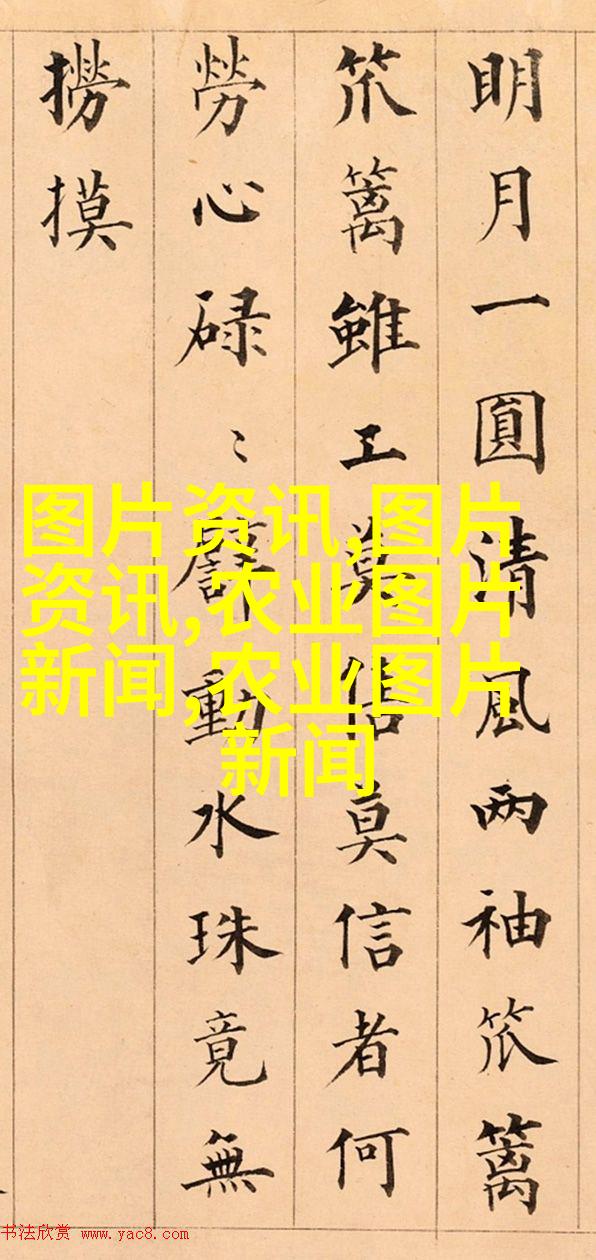 明月一圓清風两袖笊篱
笊篱雖工莫信莫信者何
勞心碌〻動水珠竟無
撈摸
图片资讯,图片
资讯,农业图片
新闻,农业图片
新闻
书法欣赏 www.yac8.com